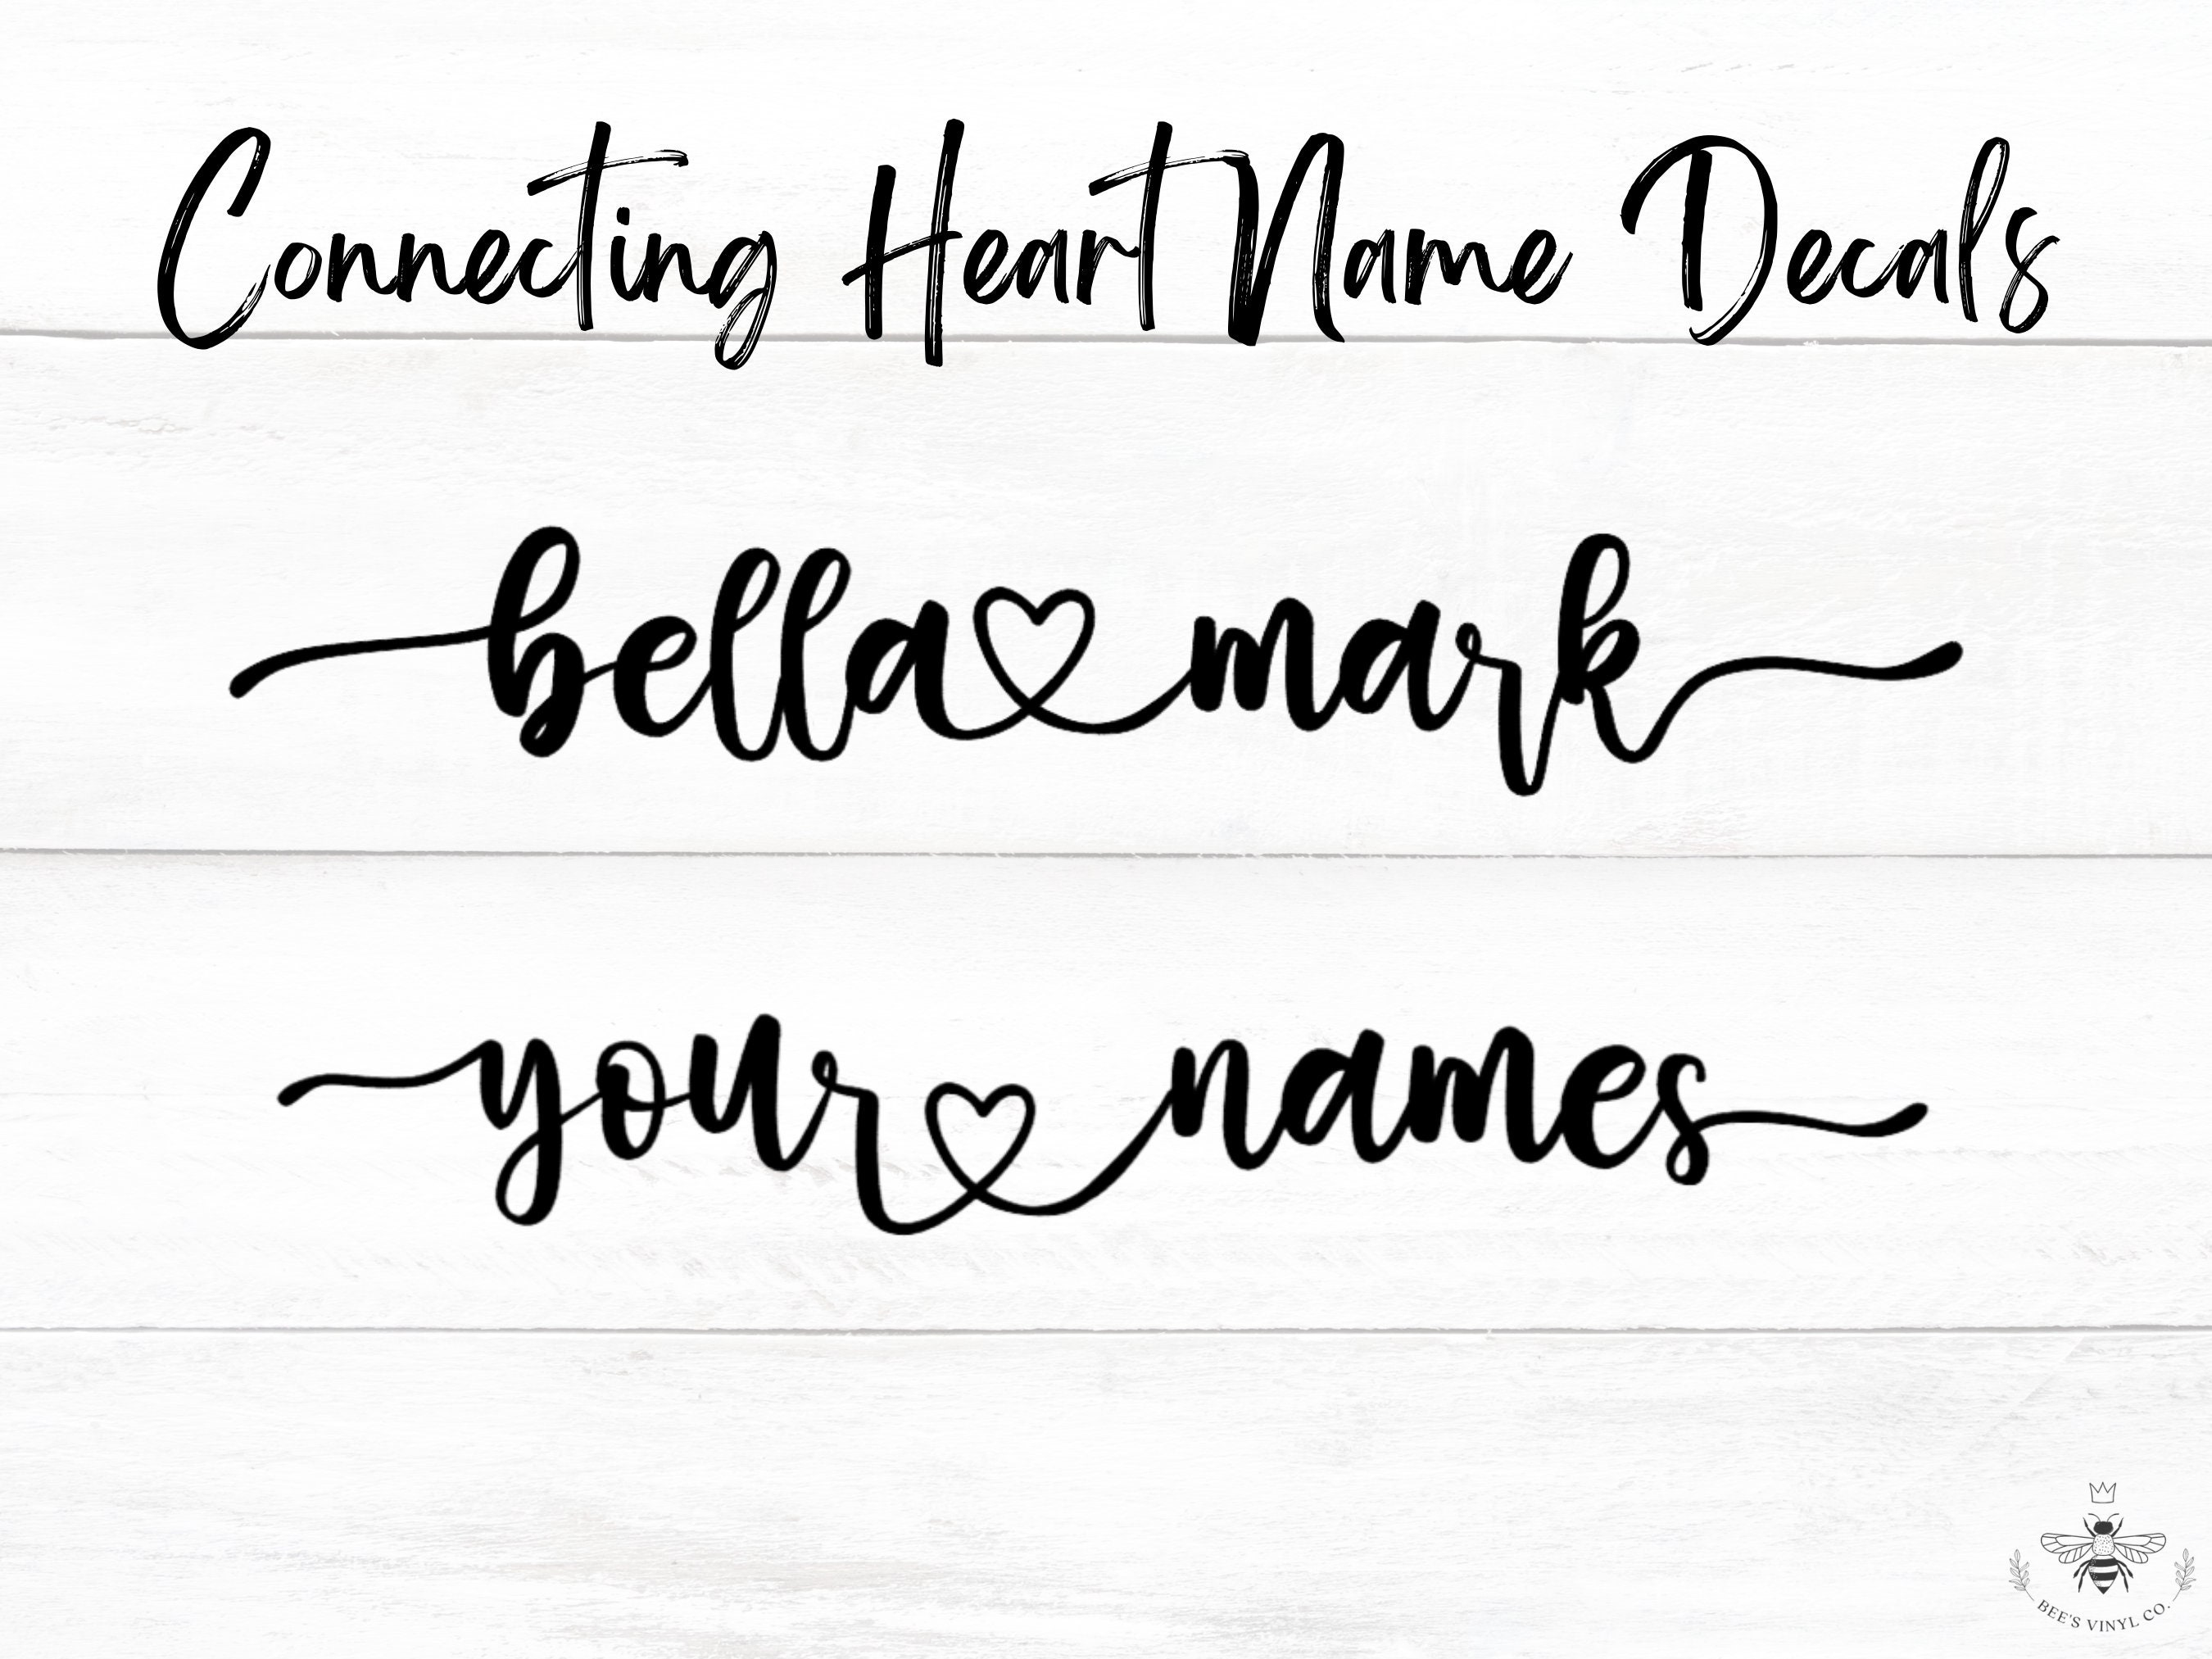 Connecting Heart Name Decals
bella mark
your names
BEE'S VINYL CO.